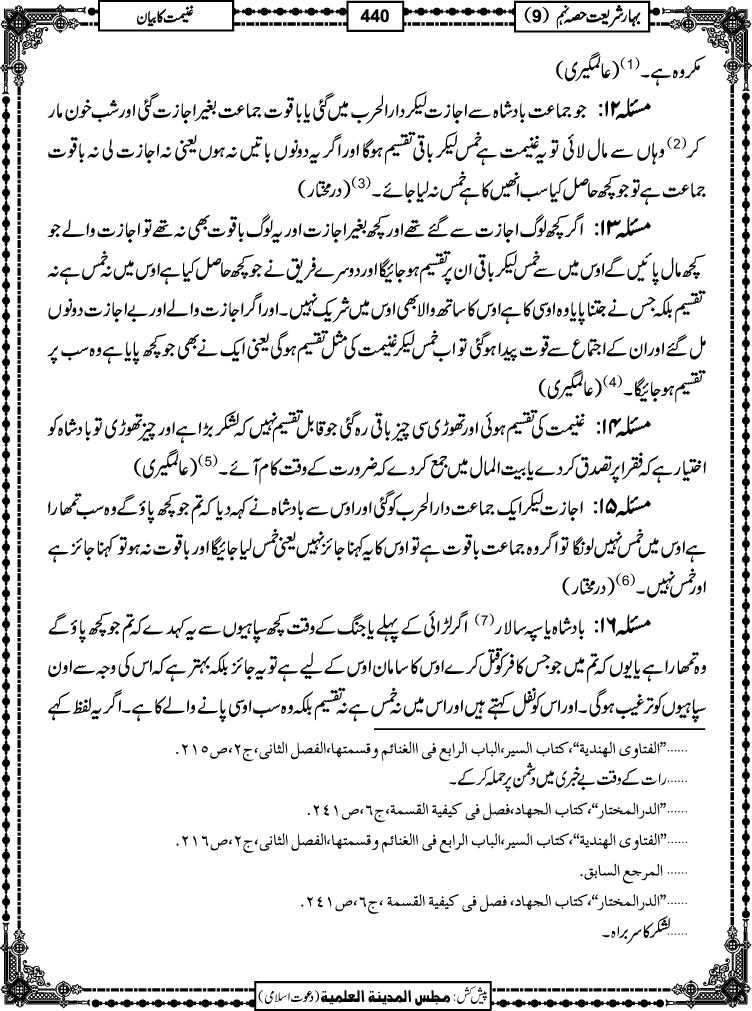 بہار شریعت حصہ نہم (9)
440
غنیمت کا بیان
مکروہ ہے۔(1) (عالمگیری)
مسئلہ ۱۲: جو جماعت بادشاہ سے اجازت لیکر دارالحرب میں گئی یا باقوت جماعت بغیر اجازت گئی اور شب خون مار
کر(2) وہاں سے مال لائی تو یہ غنیمت ہے خمس لیکر باقی تقسیم ہوگا اور اگر یہ دونوں باتیں نہ ہوں یعنی نہ اجازت لی نہ باقوت
جماعت ہے تو جو کچھ حاصل کیا سب انھیں کا ہے خمس نہ لیا جائے۔(3) (درمختار)
مسئلہ ۱۳: اگر کچھ لوگ اجازت سے گئے تھے اور کچھ بغیر اجازت اور یہ لوگ باقوت بھی نہ تھے تو اجازت والے جو
کچھ مال پائیں گے اوس میں سے خمس لیکر باقی ان پر تقسیم ہوجائیگا اور دوسرے فریق نے جو کچھ حاصل کیا ہے اوس میں نہ خمس ہے نہ
تقسیم بلکہ جس نے جتنا پایا وہ اوسی کا ہے اوس کا ساتھ والا بھی اوس میں شریک نہیں۔ اور اگر اجازت والے اور بے اجازت دونوں
مل گئے اور ان کے اجتماع سے قوت پیدا ہوگئی تو اب خمس لیکر غنیمت کی مثل تقسیم ہوگی یعنی ایک نے بھی جو کچھ پایا ہے وہ سب پر
تقسیم ہوجائیگا۔(4) (عالمگیری)
مسئلہ ۱۴: غنیمت کی تقسیم ہوئی اور تھوڑی سی چیز باقی رہ گئی جو قابل تقسیم نہیں کہ لشکر بڑا ہے اور چیز تھوڑی تو بادشاہ کو
اختیار ہے کہ فقرا پر تصدق کردے یا بیت المال میں جمع کردے کہ ضرورت کے وقت کام آئے۔(5) (عالمگیری)
مسئلہ ۱۵: اجازت لیکر ایک جماعت دارالحرب کو گئی اور اوس سے بادشاہ نے کہہ دیا کہ تم جو کچھ پاؤ گے وہ سب تمھارا
ہے اوس میں خمس نہیں لونگا تو اگر وہ جماعت باقوت ہے تو اوس کا یہ کہنا جائز نہیں یعنی خمس لیا جائیگا اور باقوت نہ ہو تو کہنا جائز ہے
اور خمس نہیں۔(6) (درمختار)
مسئلہ ۱۶: بادشاہ یا سپہ سالار(7) اگر لڑائی کے پہلے یا جنگ کے وقت کچھ سپاہیوں سے یہ کہدے کہ تم جو کچھ پاؤ گے
وہ تمھارا ہے یا یوں کہ تم میں جو جس کافر کو قتل کرے اوس کا سامان اوس کے لیے ہے تو یہ جائز بلکہ بہتر ہے کہ اس کی وجہ سے اون
سپاہیوں کو ترغیب ہوگی۔ اور اس کو نفل کہتے ہیں اور اس میں نہ خمس ہے نہ تقسیم بلکہ وہ سب اوسی پانے والے کا ہے۔ اگر یہ لفظ کہے
......”الفتاوی الھندیة“، کتاب السیر،الباب الرابع فی االغنائم و قسمتھا،الفصل الثانی،ج۲،ص۲۱۵.
......رات کے وقت بے خبری میں دشمن پر حملہ کر کے۔
......”الدرالمختار“، کتاب الجھاد،فصل فی کیفیة القسمة،ج٦،ص٢٤١.
......”الفتاوی الھندیة“، کتاب السیر،الباب الرابع فی االغنائم و قسمتھا،الفصل الثانی،ج۲،ص۲۱٦.
...... المرجع السابق.
......”الدرالمختار“، کتاب الجھاد، فصل فی کیفیة القسمة ،ج٦،ص٢٤١.
......لشکر کا سربراہ۔
پیش کش: مجلس المدینة العلمیة (دعوت اسلامی)